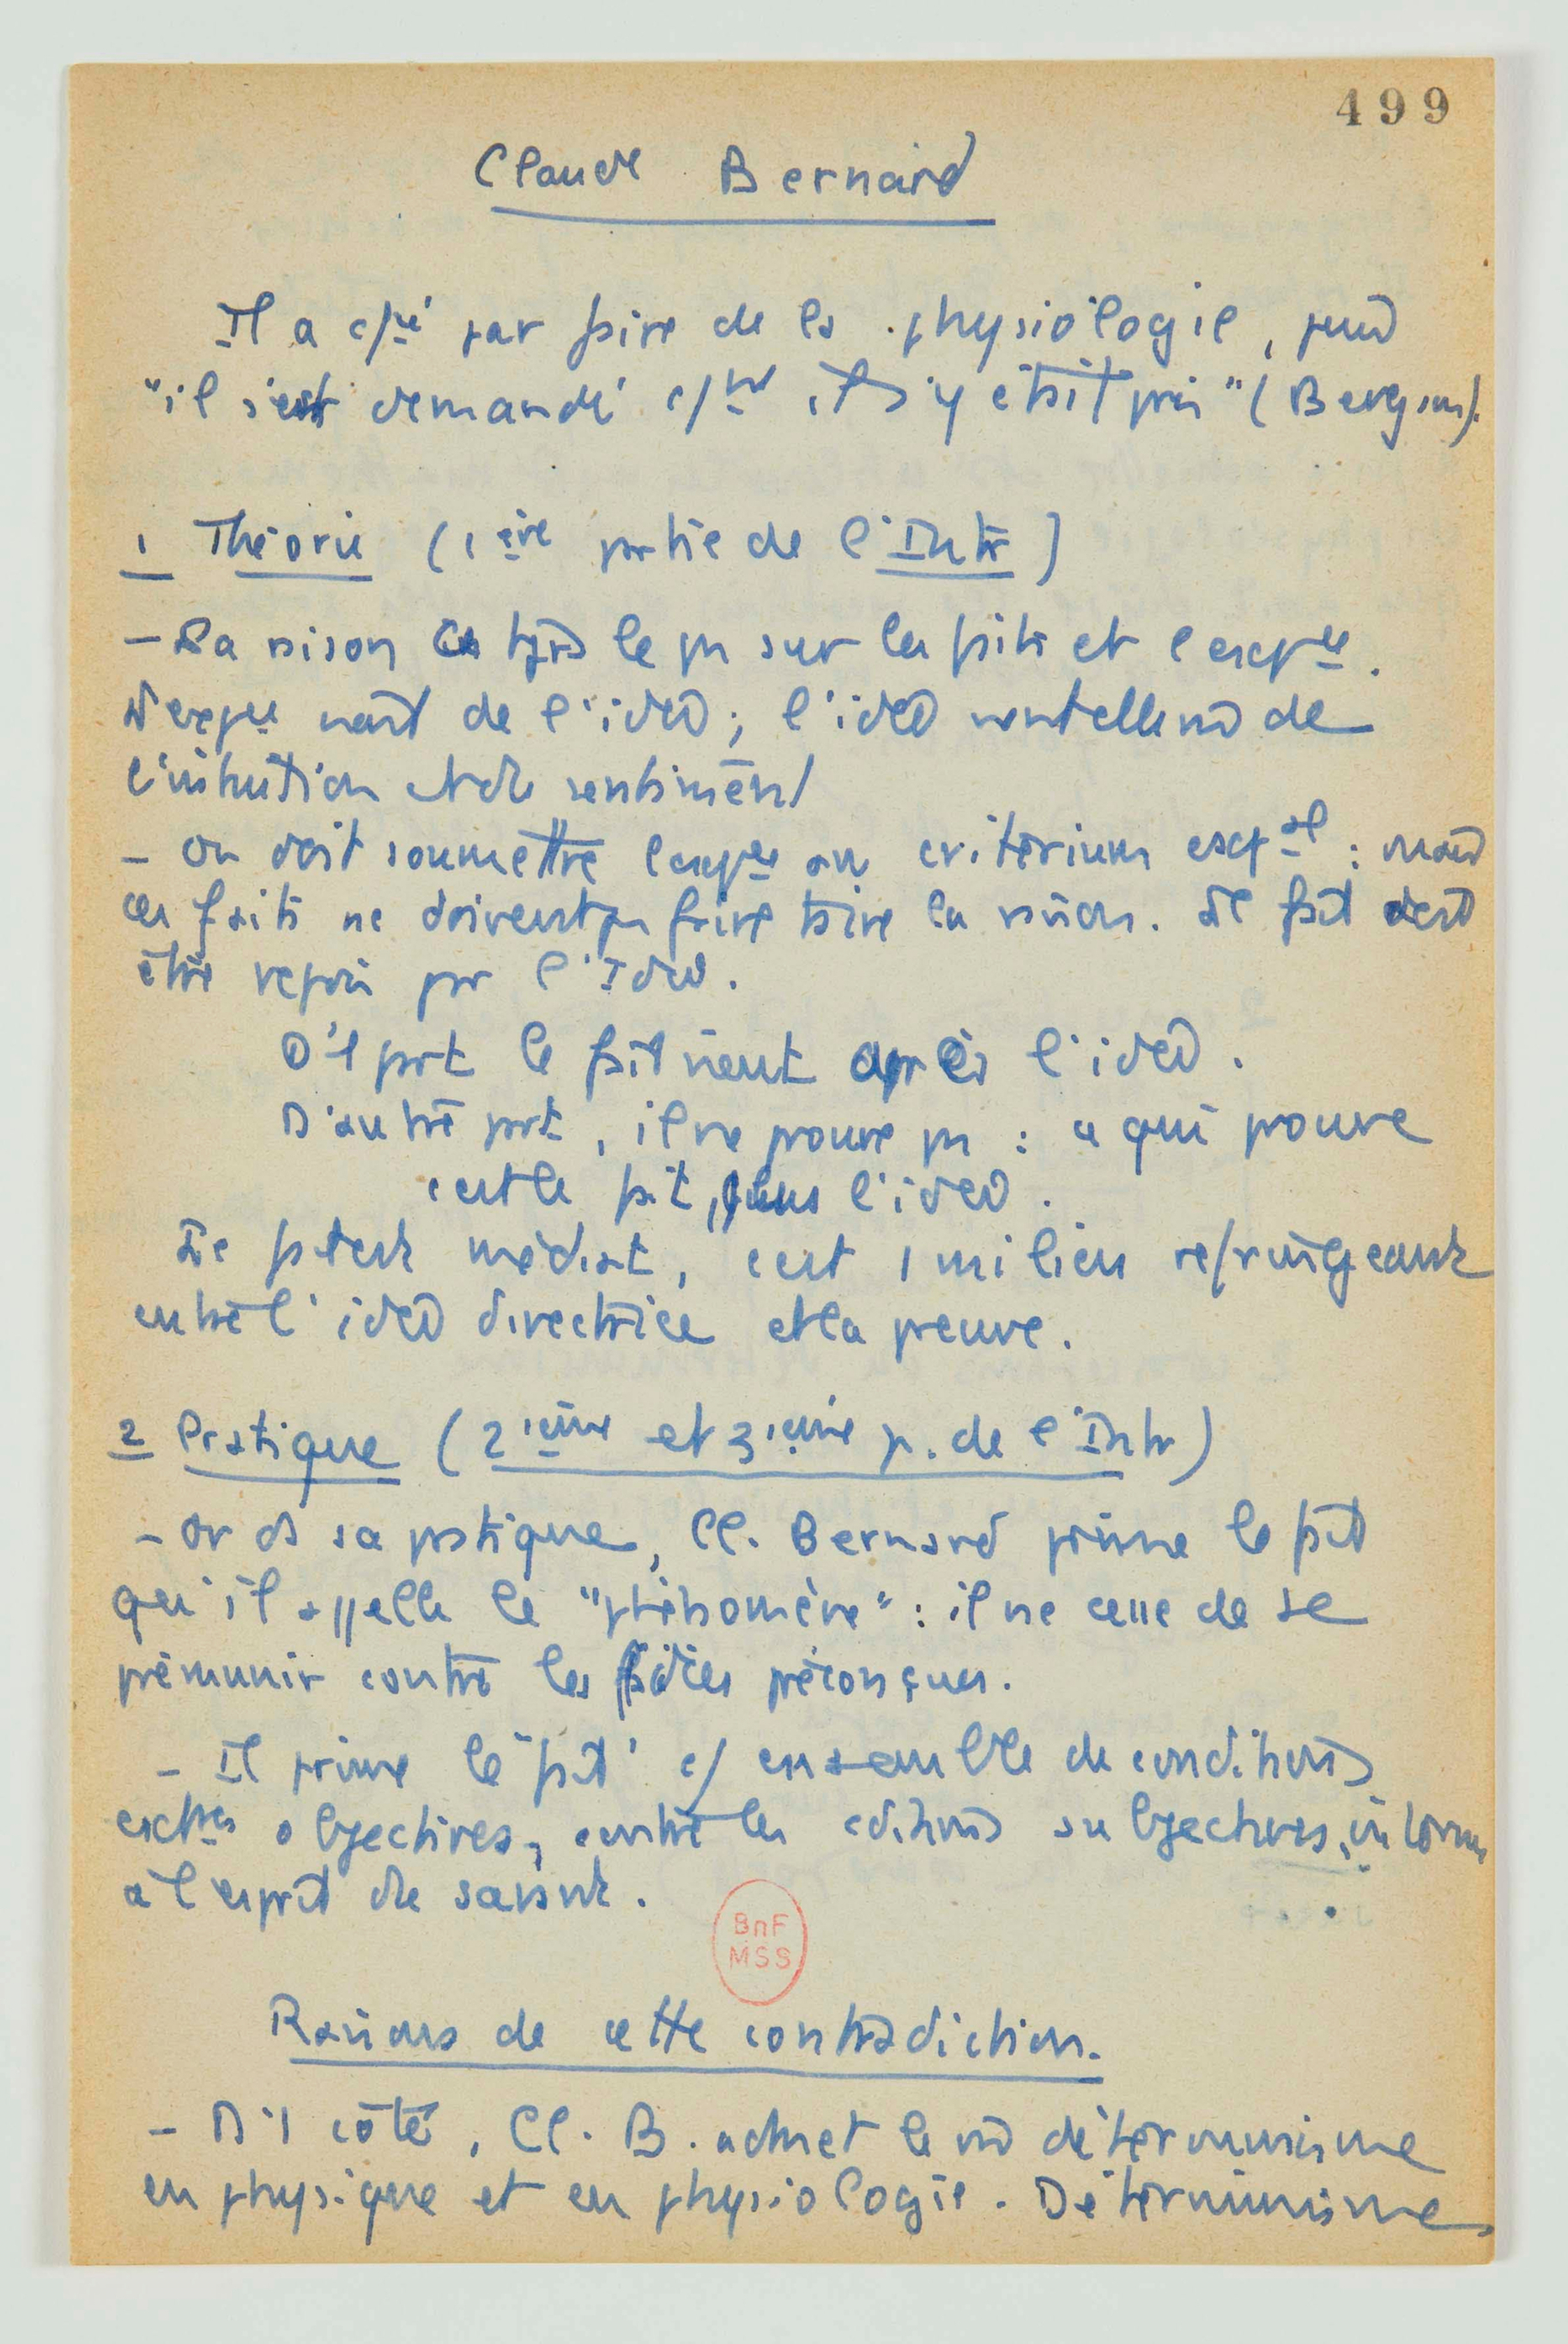 499
Claude Bernard
Il a c/cé par faire de la physiologie, puis
"il s'est demandé c/nt il s'y était pris" (Bergson).
1 Théorie (1ère partie de l'Intr)
- La raison a tjrs le pas sur les faits et l'expce.
L'expce naît de l'idée; l'idée de
l'intuition et du sentiment
- On doit soumettre l'expce au criterium exptal : mais
les faits ne doivent pas faire taire la raison. Le fait doit
être repris par l'Idée.
D'1 part le fait vient après l'idée.
D'autre part, il ne prouve pas : ce qui prouve
c'est le fait, l'idée.
Le fait est médiat, c'est 1 milieu refringeant
entre l'idée directrice et la preuve.
2 Pratique (2ième et 3ième p. de l'Intr)
- Or ds sa pratique, Cl. Bernard prime le fait
qu'il appelle le "phénomène" : il ne cesse de se
prémunir contre les idées préconçues.
- Il prime le "fait" c/ ensemble de conditions
extres objectives, contre les cditions subjectives, internes
à l'esprit du savant.
BnF
MSS
Raisons de cette contradiction.
- D'1 côté, Cl. B. admet le déterminisme
en physique et en physiologie. Déterminisme